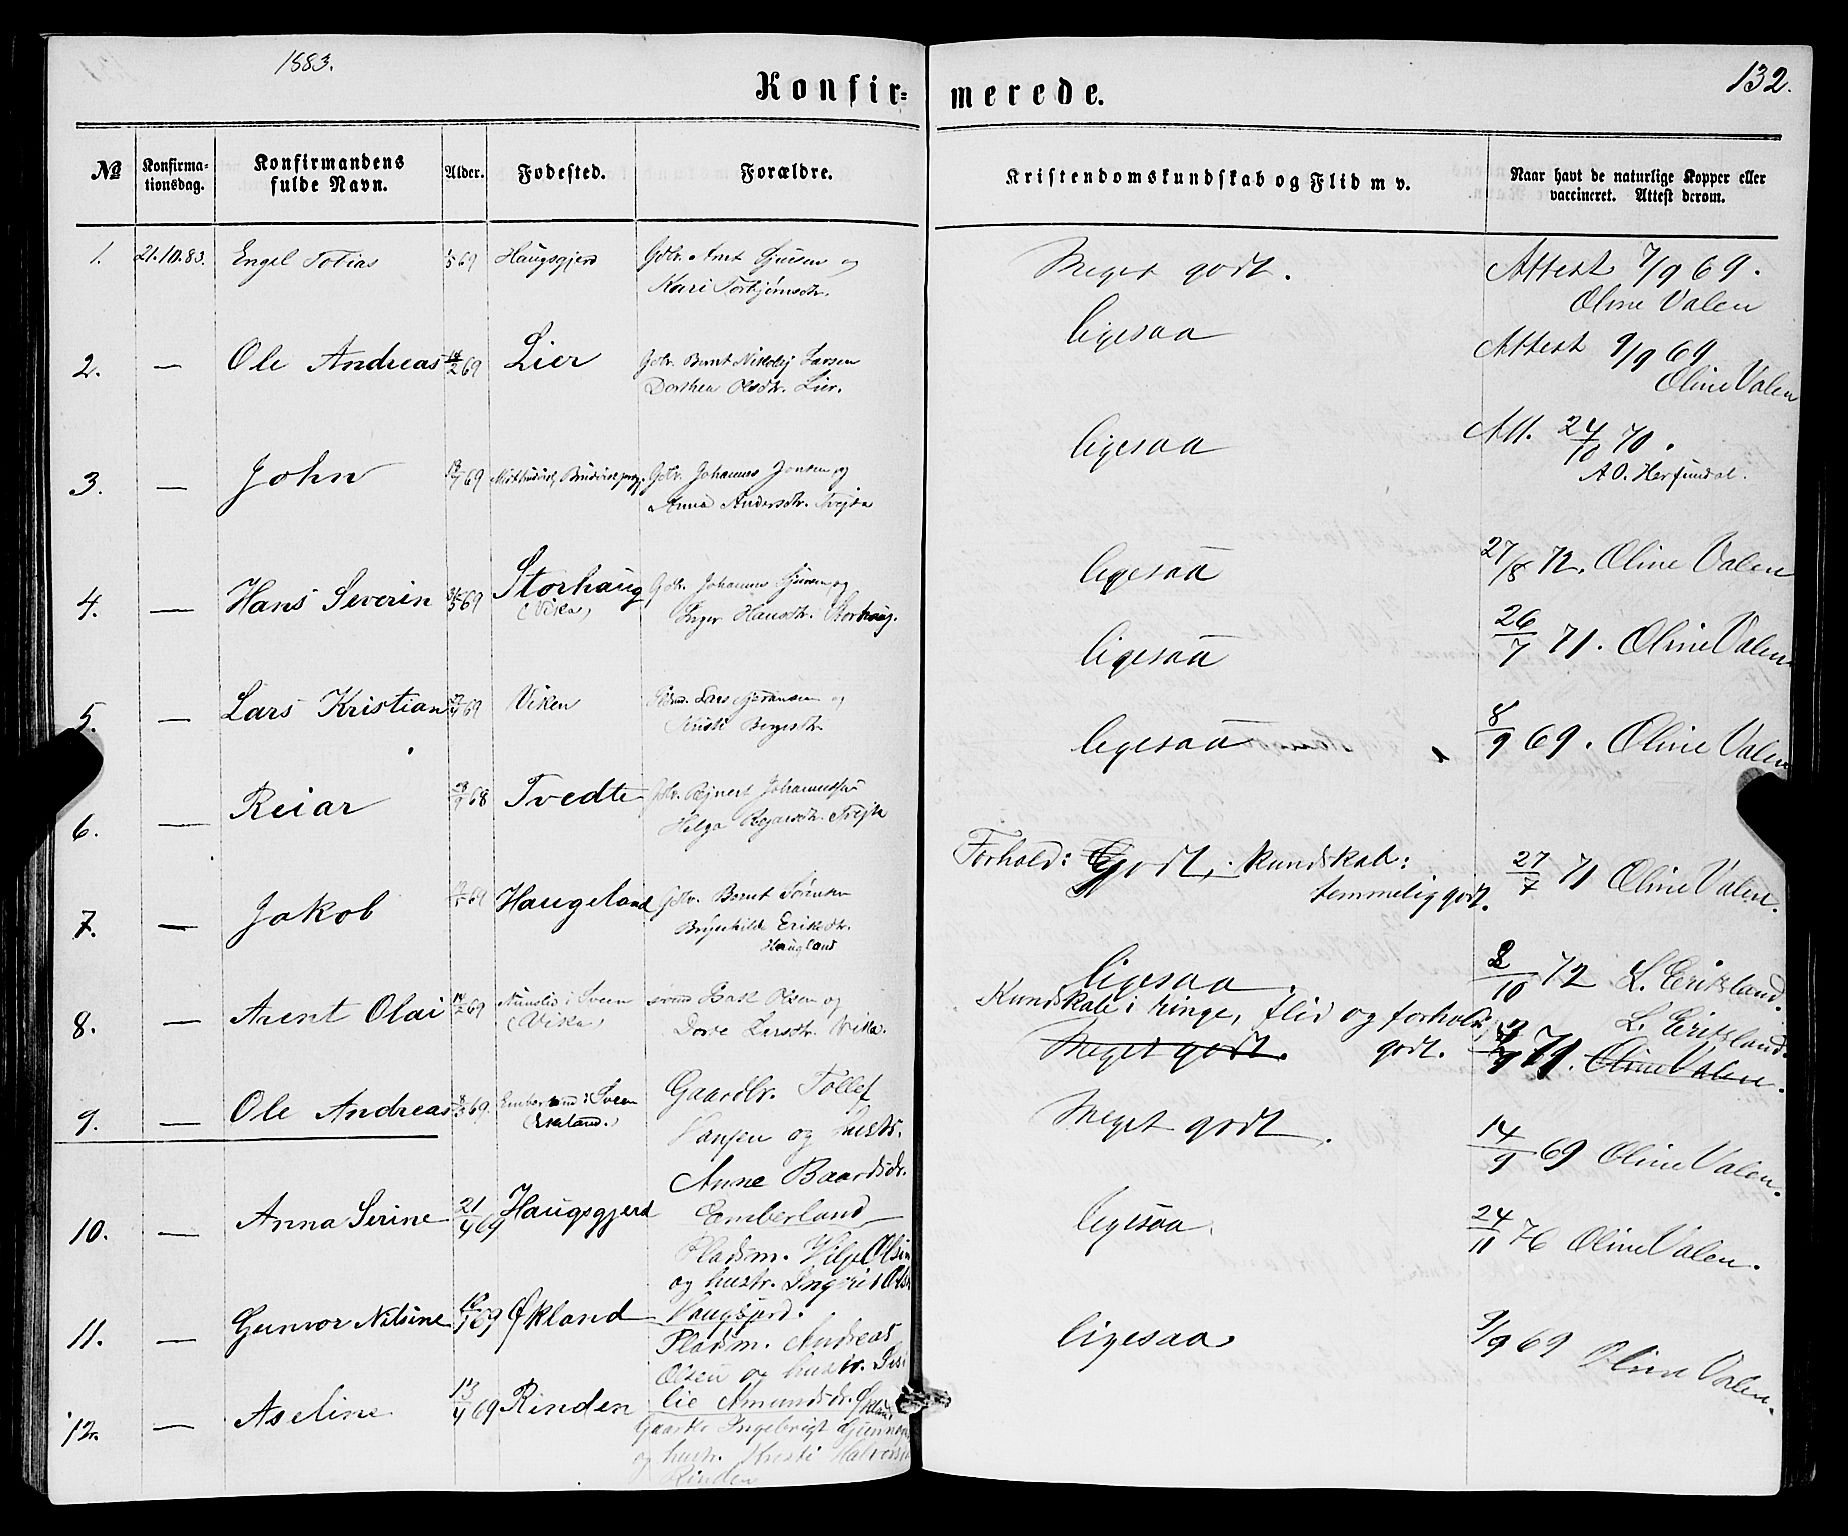 1883.
132.
Konfir-
merede.
No
Konfirma-
tionsdag.
Konfirmandens
fulde Navn.
Alder.
Fødested.
Forældre.
Kristendomskundskab og Flid m v.
Naar havt de naturlige Kopper eller
vaccineret. Attest derom.
1. 21.10.83. Engel Tobias 1/5 69 Haugsgjerd Gdbr. Arnt
Kari Torbjørnsdtr.
Meget godt. Attest 7/9 69.
Oline Valen
2. — Ole Andreas 18/2 69 Lier Gdbr. Bernt Nikolej Larsen
Dorthea Olsdtr. Lier.
ligesaa Attest 9/9 69
Oline Valen
3. — John 69 Gdbr. Johannes Jonsen og
Anna Andersdtr. Tvejta
ligesaa Att. 24/10 70.
A O. Herfindal.
4. — Hans Severin 69 Storhaug Gdbr. Johannes og
(Vika) Inger Hansdtr. Storhaug.
ligesaa 27/8 72. Oline Valen
5. — Lars Kristian 69 Viken Lars Gøransen og
Kristi
ligesaa 26/7 71. Oline Valen
6. — Reiar 68 Tvedte Gdbr. Rejnert Johannessen
Helga Rejarsdtr. Tvejta
ligesaa 8/9 69. Oline Valen
7. — Jakob 69 Haugeland Gdbr. Bernt Tørresen
Brynhilde Eriksdtr.
Haugland
Forhold: Godt, kundskab:
temmelig godt.
27/7 71 Oline Valen.
8. — Arent Olai 14/2 69 i Sveen Olsen og
(Vika) Larsdtr. Vika.
ligesaa. 8/10 72 L. Eriksland.
9. — Ole Andreas 69. Emberland i Sveen Gaardbr. Tollef
Hansen og hustr.
Anne Baardsdr.
Emberland
Kundskab i ringe, flid og forhold
Meget godt. godt.
71. Oline Valen.
L. Eriksland
10. — Anna Serine 21/4 69 Haugsgjerd
Pladsm. Vilje Olsen
og hustr. Ingeri Ols
Haugsjerd.
Meget godt. 14/9 69 Oline Valen.
11. — Gunvor Nilsine 69 Økland
Pladsm. Andreas
Olsen og hustr. Sisi
lie Amundsdr. Økland
ligesaa. 24/11 76 Oline Valen.
12. — Aseline 13/4 69 Rinden
Gaardbr Ingebrigt Gunnars
og hustr. Kristi Halvors
Rinden
ligesaa. 9/9 69 Oline Valen.